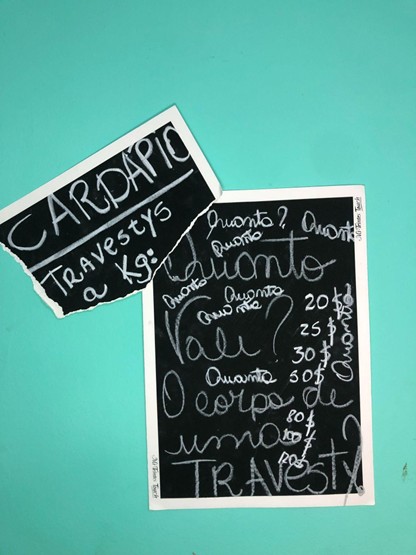 CARDÁPIO
TRAVESTYS
a Kg:
Quanto? Quanto
Quanto
Quanto
Quanto Quanto
Quanto
Vali?
20$
25$
30$
Quanto
Quanto 50$
O corpo de
80$
uma ?
100$
120$
TRAVESTY